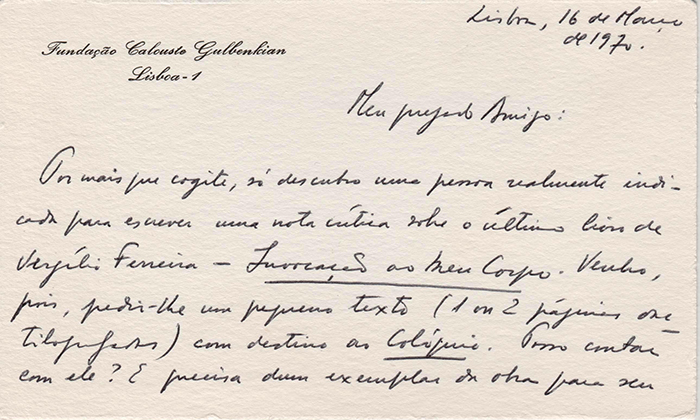 Lisboa, 16 de Março
de 1970.
Fundação Calouste Gulbenkian
Lisboa-1
Meu prezado Amigo:
Por mais que cogite, só descubro uma pessoa realmente indi-
cada para escrever uma nota crítica sobre o último livro de
Vergílio Ferreira — Invocação ao Meu Corpo. Venho,
pois, pedir-lhe um pequeno texto (1 ou 2 páginas dac-
tilografadas) com destino ao Colóquio. Posso contar
com ele? E precisa dum exemplar da obra para seu